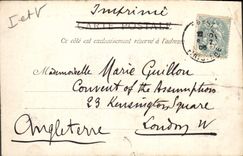 Imprimé
I et V
CARTE POSTALE
Ce côté est exclusivement réservé à l'adresse
Mademoiselle Marie Guillon
Convent of the Assumption
23 Kensington Square
Angleterre London W